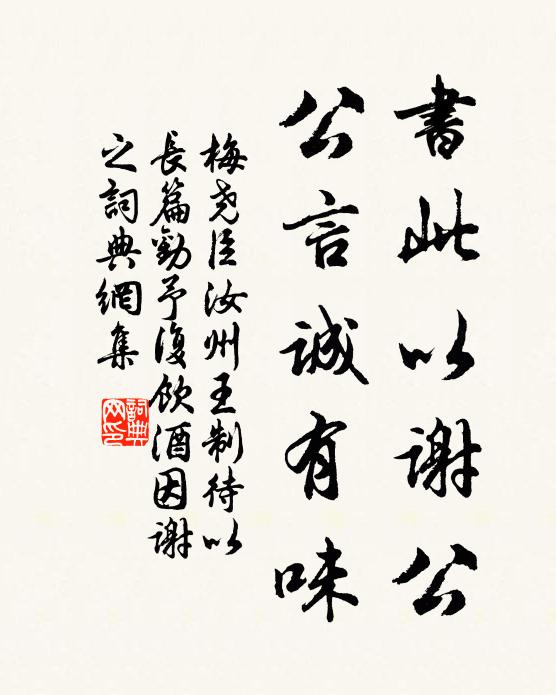 書此以謝公
公言誠有味
梅堯臣汝州王制待以
長篇勸予復飲酒因謝
之詞典網集
詞典網印